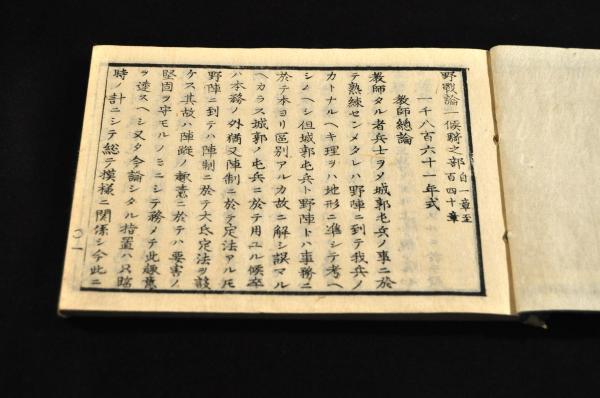 野戰論一候騎之部自一章至百四十章
一千八百六十一年式
教師總論
教師タル者兵士ヲメ城郭屯兵ノ事ニ於
テ熟練センメタレハ野陣ニ到テ我兵ノ
カトナルヘキ理ヲハ地形ニ準シテ考ヘ
シメヘシ但城郭屯兵ト野陣トハ事務ニ
於テ本ヨリ區別アルカ故ニ解シ誤マル
ヘカラス城郭ノ屯兵ニ於テ用ユル候卒
ハ本務ノ外猶又陣制ニ於テ定法アル𪜈
野陣ニ到テハ陣制ニ於テ大氐定法ヲ設
ケス其故ハ陣蹤ノ趣意ニ於テハ要害ノ
堅固ヲ守モルノミニシテ務メテ此趣意
ヲ達スヘシ又タ今論シタル指置ハ只臨
時ノ計ニシテ総テ模様ニ関係シ今此ニ
〇一